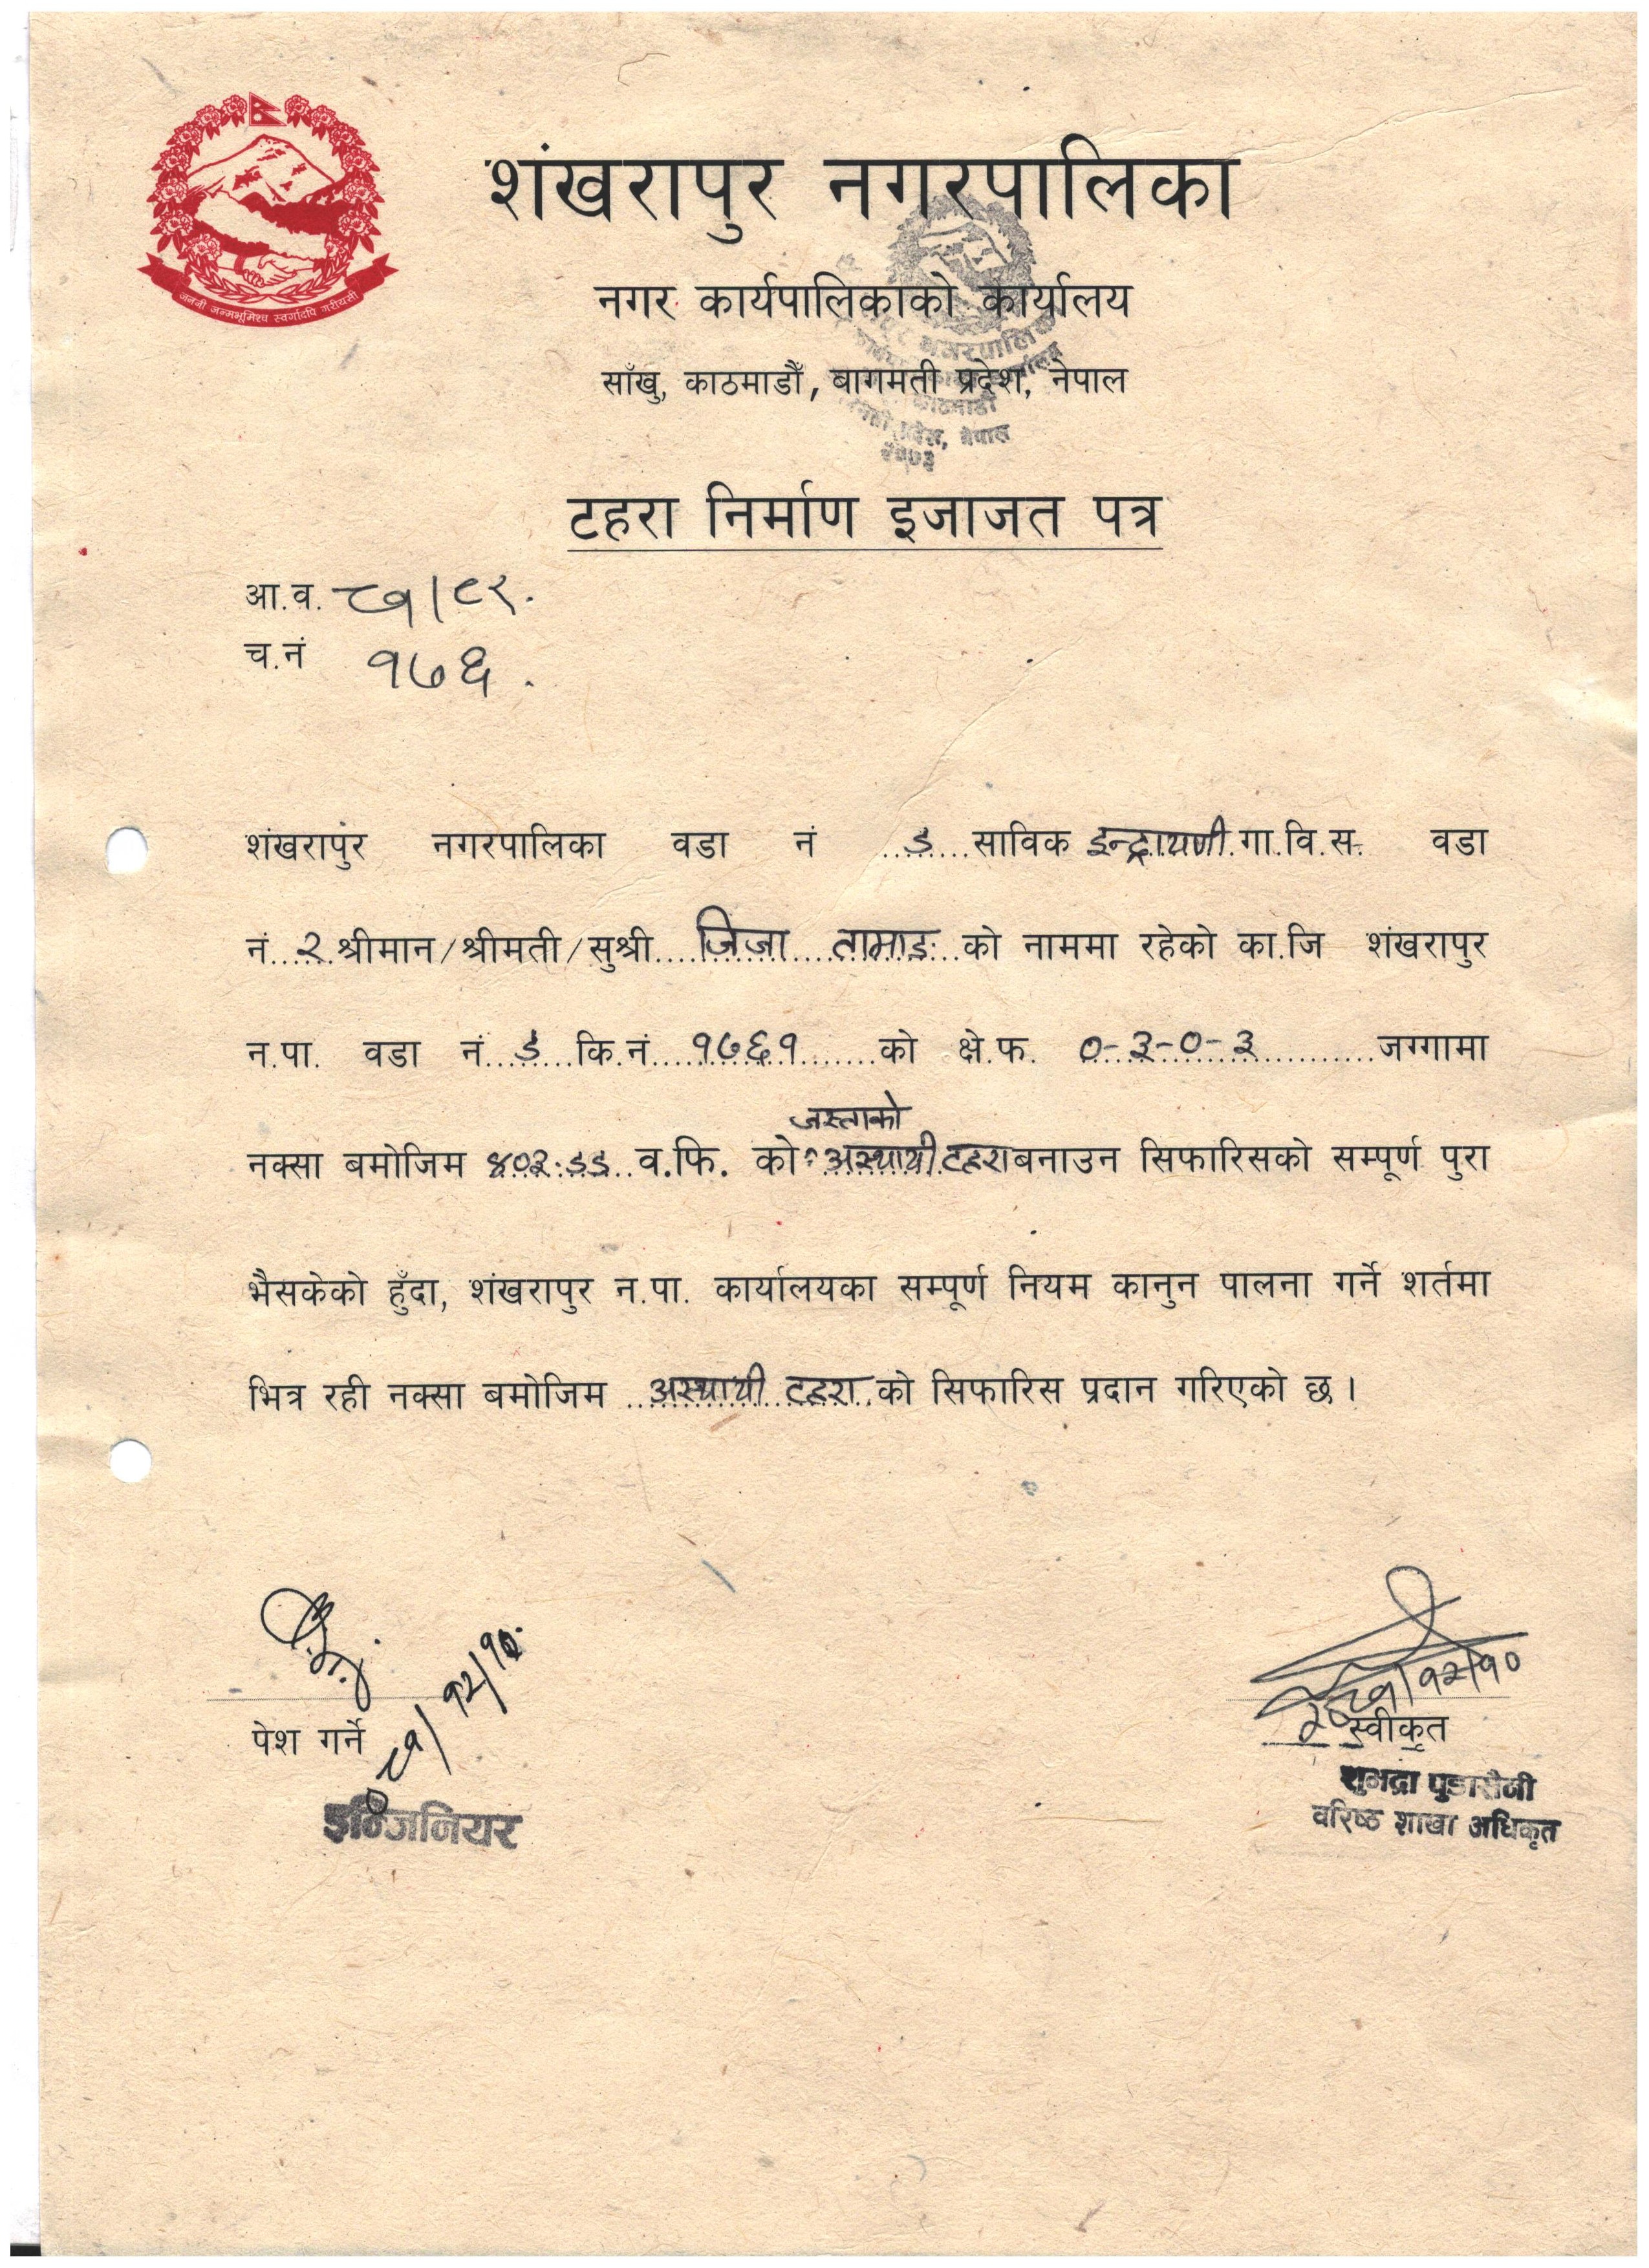 जननी जन्मभूमिश्च स्वर्गादपि गरीयसी
शंखरापुर नगरपालिका
नगर कार्यपालिकाको कार्यालय
साँखु, काठमाडौँ, बागमती प्रदेश, नेपाल
टहरा निर्माण इजाजत पत्र
आ.व. ८१/८२.
च.नं १७६.
शंखरापुर नगरपालिका वडा नं ५ साविक इन्द्रायणी गा.वि.स. वडा
नं २ श्रीमान/श्रीमती/सुश्री जिजा तामाङ को नाममा रहेको का.जि शंखरापुर
न.पा. वडा नं ५ कि.नं १७६१ को क्षे.फ. ०-३-०-३ जग्गामा
जस्ताको
नक्सा बमोजिम ४०२.५५ व.फि. को अस्थायी टहरा बनाउन सिफारिसको सम्पूर्ण पुरा
भैसकेको हुँदा, शंखरापुर न.पा. कार्यालयका सम्पूर्ण नियम कानुन पालना गर्ने शर्तमा
भित्र रही नक्सा बमोजिम अस्थायी टहरा को सिफारिस प्रदान गरिएको छ।
पेश गर्ने
इन्जिनियर
२०८१/१२/१०
स्वीकृत
शुभद्रा पुडासैनी
वरिष्ठ शाखा अधिकृत